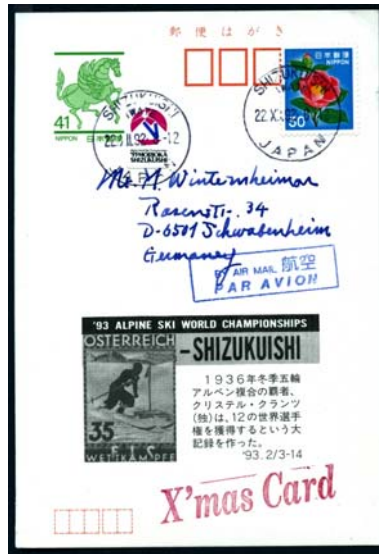 郵便はがき
41
NIPPON 日本郵便
SHIZUKUISHI
22.XII.92
JAPAN
MORIOKA
SHIZUKUISHI
日本郵便
NIPPON
30
SHIZUKUISHI
22.XII.92
JAPAN
Mr. N. Winternheimer
Rosenstr. 34
D-6501 Schwabenheim
Germany
BY AIR MAIL 航空
PAR AVION
'93 ALPINE SKI WORLD CHAMPIONSHIPS
-SHIZUKUISHI
ÖSTERREICH
35
F·I·S·
WETTKÄMPFE
1936年冬季五輪
アルペン複合の覇者、
クリステル・クランツ
(独)は、12の世界選手
権を獲得するという大
記録を作った。
'93.2/3-14
X'mas Card